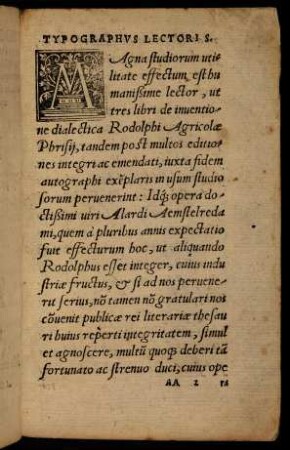 TYPOGRAPHVS LECTORI S.
MAgna studiorum uti⸗
litate effectum est hu
manißime lector, ut
tres libri de inuentio⸗
ne dialectica Rodolphi Agricolæ
Phrisij, tandem post multos editio⸗
nes integri ac emendati, iuxta fidem
autographi exẽplaris in usum studio
sorum peruenerint: Idq́; opera do⸗
ctißimi uiri Alardi Aemstelreda
mi, quem à pluribus annis expectatio
fuit effecturum hoc, ut aliquando
Rodolphus esset integer, cuius indu
striæ fructus, & si ad nos peruene
rit serius, nõ tamen nõ gratulari nos
cõuenit publicæ rei literariæ thesau
ri huius reperti integritatem, simul
et agnoscere, multũ quoq; deberi tã
fortunato ac strenuo duci, cuius ope
AA 2